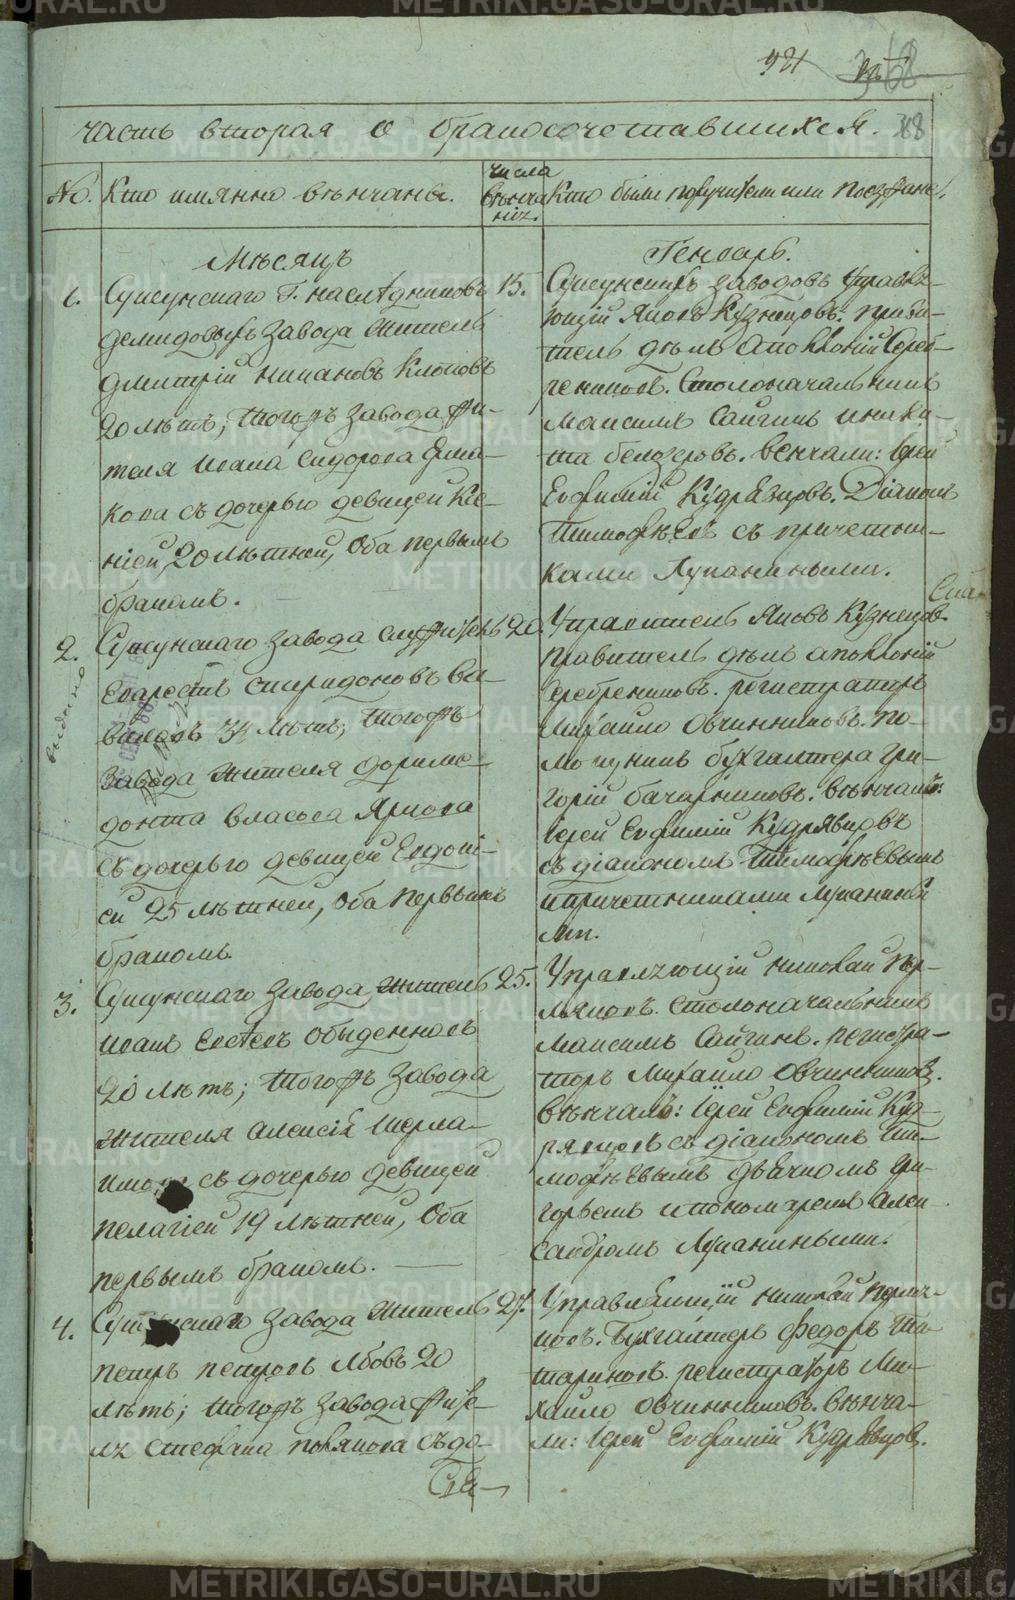 421
368
часть вторая о бракосочетавшихся.
No. Кто имянно вѣнчаны.
числа
вѣнча
нiи.
Кто были поручители или поезжане.
Мѣсяцъ
Генварь.
1. Суксунскаго Г. наслѣдниковъ
демидовыхъ завода житель
дмитрiй
20 лѣтъ; тогожъ завода жи-
теля ивана сидорова
кова съ дочерью девицей Ксе-
нiей, 20 лѣтней, оба первымъ
бракомъ.
15.
Суксунскихъ заводовъ Управля-
ющiй Яковъ Кузнецовъ. прави-
тель дѣлъ аполлонiй Сереб-
рениковъ. Столоначальникъ
Максимъ Сайгинъ и ники-
та белозеровъ. Венчали: Iерей
Евфимiй Кудрявцовъ. Дiаконъ
Тимофѣевъ съ причетни-
ками Луканиными.
2. Суксунскаго завода служитель
Еварестъ спиридоновъ ва-
34 лѣтъ; тогожъ
завода жителя дориме-
донта власова Яркова
съ дочерью девицей Евдокi-
ей 25 лѣтней, оба первымъ
бракомъ.
20.
Управитель Яковъ Кузнецовъ.
правитель дѣлъ аполлонiй
серебрениковъ. регистраторъ
Михайло Овчинниковъ. по-
мощникъ бухгалтера гри-
горiй бачарниковъ. вѣнчали:
Iерей Евфимiй Кудрявцовъ
съ дiакономъ Тимофѣевымъ
и причетниками Луканиный
ми.
3. Суксунскаго завода житель
иванъ Обыденновъ
20 лѣтъ; тогожъ завода
жителя алексiя
съ дочерью девицей
пелагiей 19 лѣтней, оба
первымъ бракомъ.
25.
Управляющiй николай пер-
мяковъ. столоначальникъ
Максимъ Сайгинъ. регистра-
торъ Михайло Овчинниковъ.
вѣнчалъ: Iерей Евфимiй Куд-
рявцовъ съ дiакономъ Ти-
мофѣевымъ дьячкомъ гри-
горьемъ и пономаремъ алек
сандромъ Луканиными.
4. завода житель
петръ петровъ Лбовъ 20
лѣтъ; тогожъ завода жите-
ля стефана съ до-
27.
Управляющiй николай пермя-
ковъ. Бухгалтеръ федоръ та-
тариновъ. регистраторъ Ми-
хайло Овчинниковъ. вѣнча-
ли: Iерей Евфимiй Кудрявцовъ.
METRIKI.GASO-URAL.RU